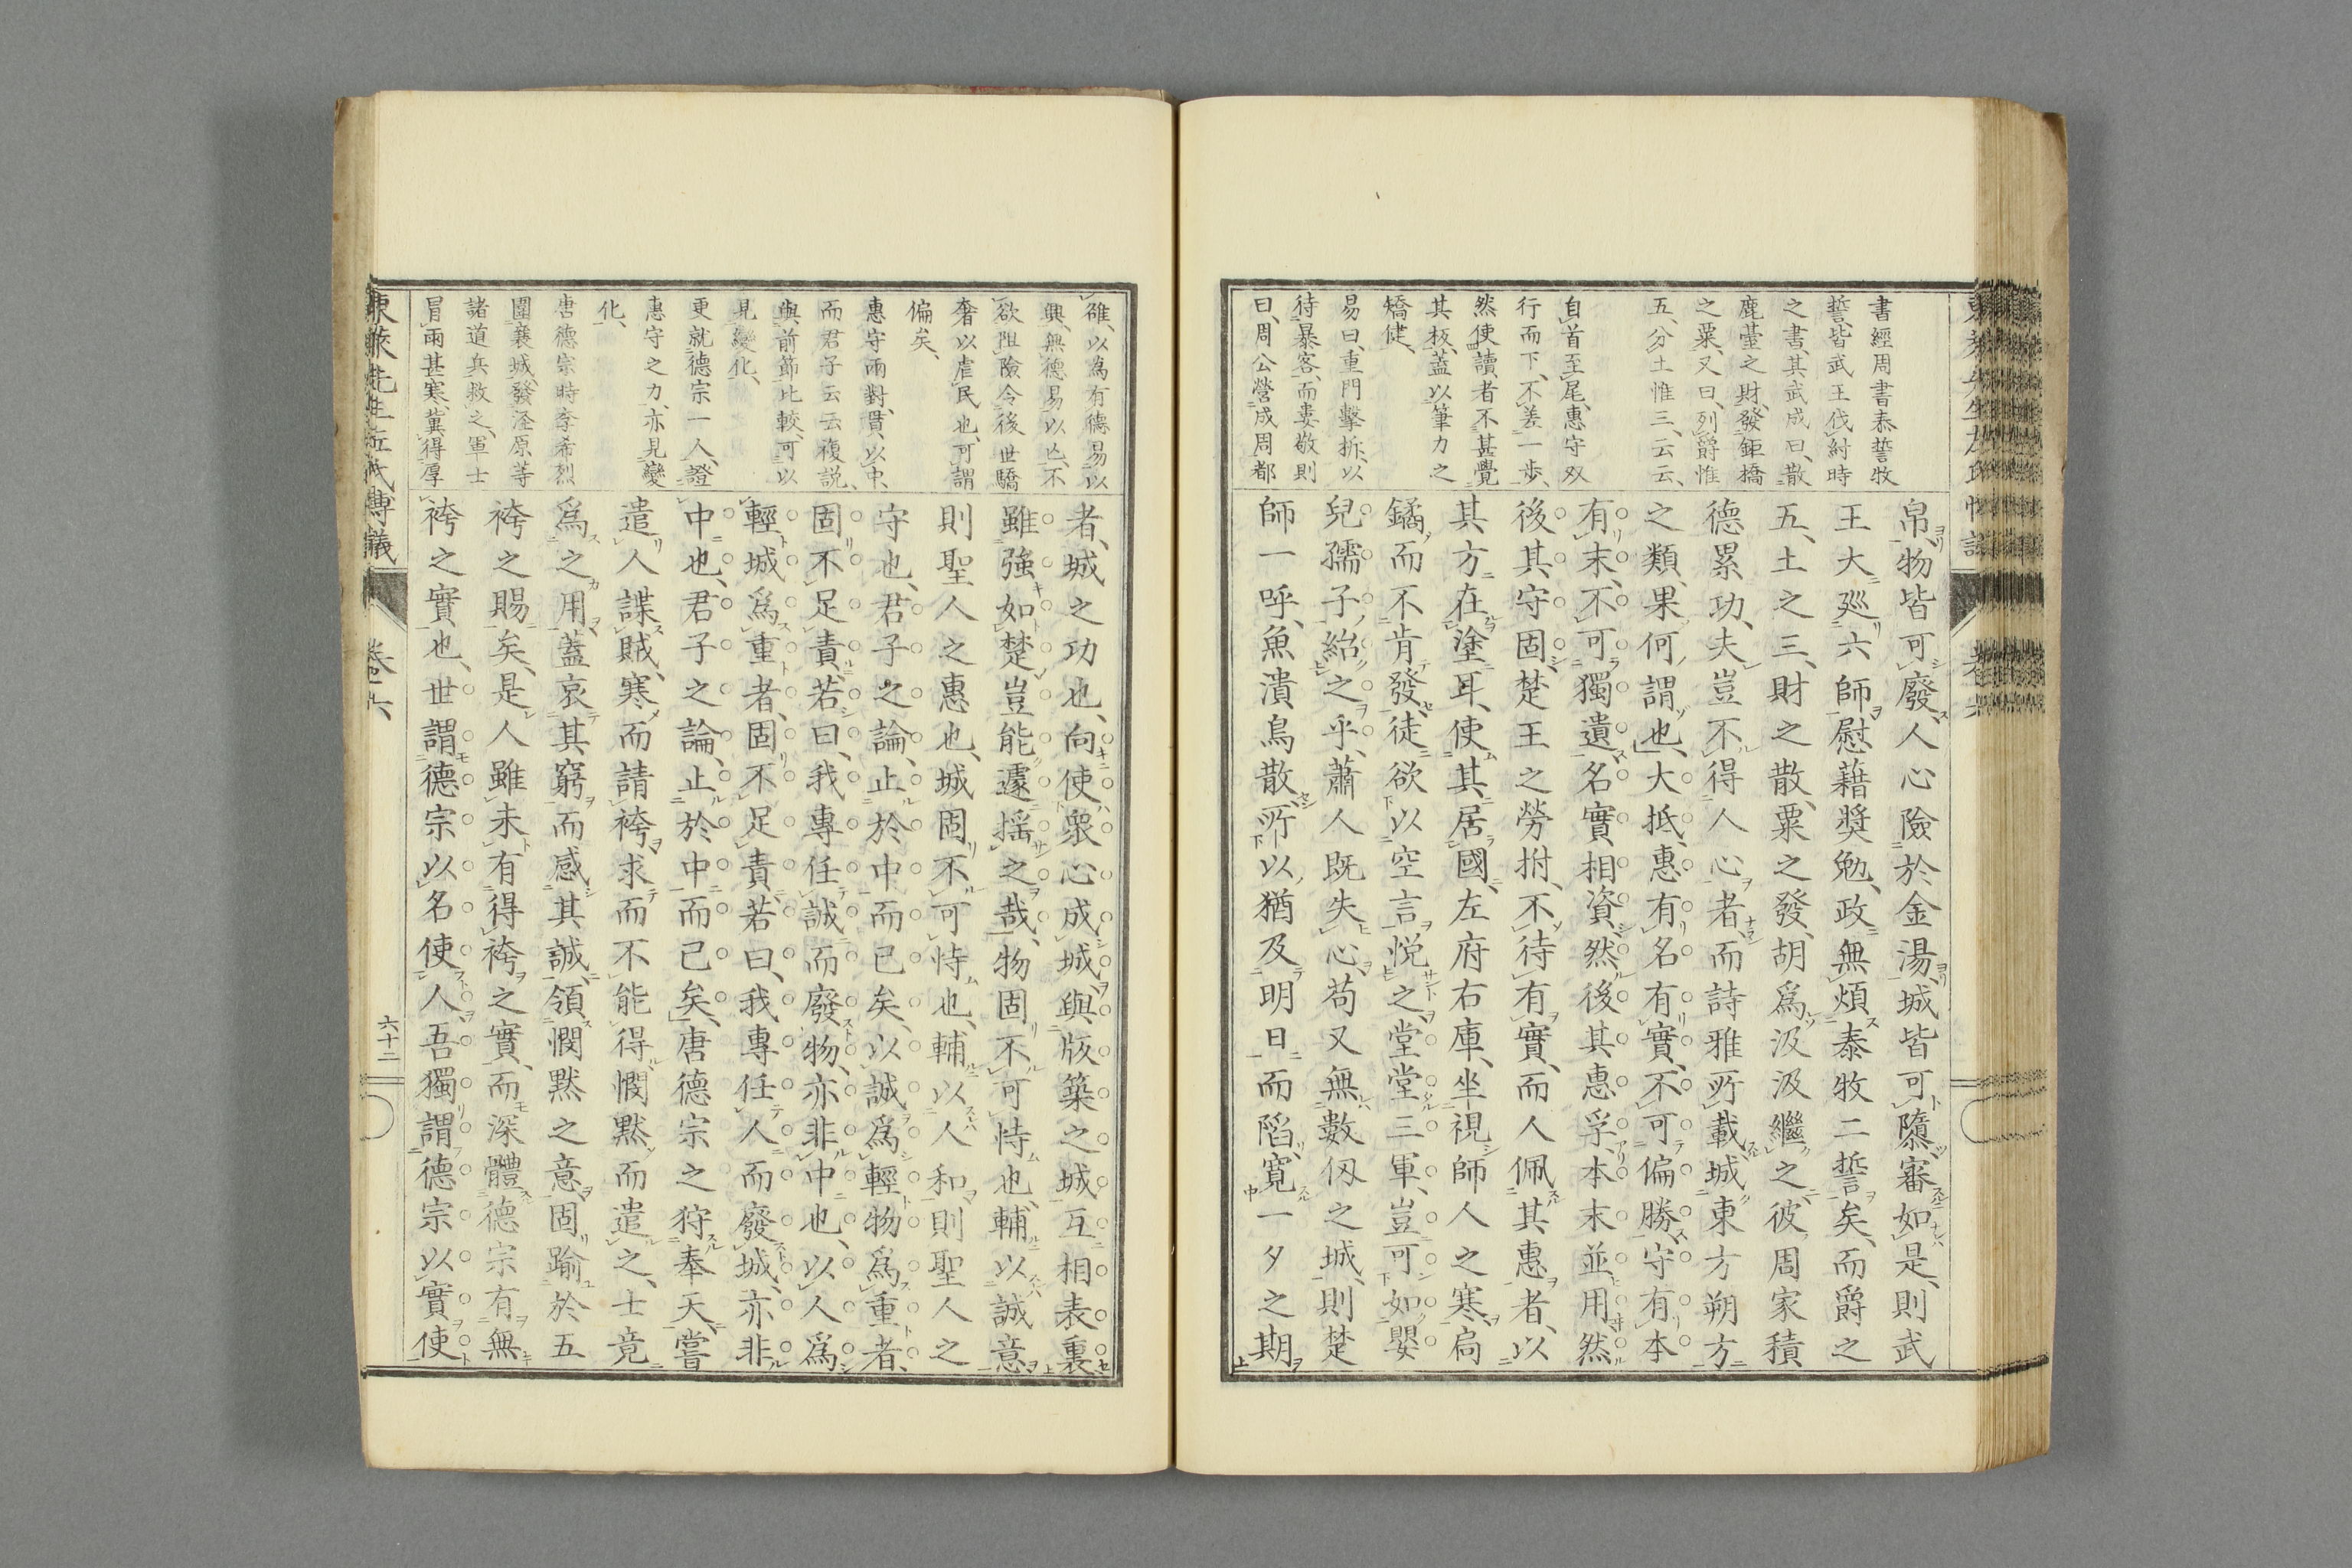 書經周書泰誓牧
誓、皆武王伐紂時
之書、其武成曰、散
鹿臺之財、發鉅橋
之粟、又曰、列爵惟
五、分土惟三、云云、
自首至尾、惠守双
行而下、不差一歩、
然使讀者不甚覺
其板、蓋以筆力之
矯健、
易曰、重門擊柝、以
待暴客、而婁敬則
曰、周公營成周都
帛、物皆可廢、人心險於金湯、城皆可隳、審如是、則武
王大廵六師、慰藉奬勉、政無煩泰牧二誓矣、而爵之
五、土之三、財之散、粟之發、胡爲汲汲繼之、彼周家積
德累功、夫豈不得人心者、而詩雅所載、城東方朔方
之類、果何謂也、大抵、惠有名有實、不可偏勝、守有本
有末、不可獨遺、名實相資、然後其惠孚、本末並用、然
後其守固、楚王之勞拊、不待有實、而人佩其惠者、以
其方在塗耳、使其居國、左府右庫、坐視師人之寒、扃
鐍而不肯發、徒欲以空言悦之、堂堂三軍、豈可如嬰
兒孺子紿之乎、蕭人既失心、苟又無數仭之城、則楚
師一呼、魚潰鳥散、所以猶及明日而陷、寛一夕之期
者、城之功也、向使衆心成城、與版築之城、互相表裏
雖強如楚、豈能遽揺之哉、物固不可恃也、輔以誠意
則聖人之惠也、城固不可恃也、輔以人和、則聖人之
守也、君子之論、止於中而已矣、以誠爲輕、物爲重者、
固不足責、若曰、我專任誠而廢物、亦非中也、以人爲
輕、城爲重者、固不足責、若曰、我專任人而廢城、亦非
中也、君子之論、止於中而已矣、唐德宗之狩奉天、嘗
遣人諜賊、寒而請袴、求而不能得、憫黙而遣之、士竟
爲之用、蓋哀其窮而感其誠、領憫黙之意、固踰於五
袴之賜矣、是人雖未有得袴之實、而深體德宗有無
袴之實也、世謂德宗以名使人、吾獨謂德宗以實使
雒、以為有德易以
興、無德易以亡、不
欲阻險令後世驕
奢以虐民也、可謂
偏矣、
惠守兩對、貫以中、
而君子云云複説、
與前節比較、可以
見變化、
更就德宗一人、證
惠守之力、亦見變
化、
唐德宗時李希烈
圍襄城、發涇原等
諸道兵救之、軍士
冒雨甚寒、冀得厚
東萊先生左氏博議
卷六
六十二